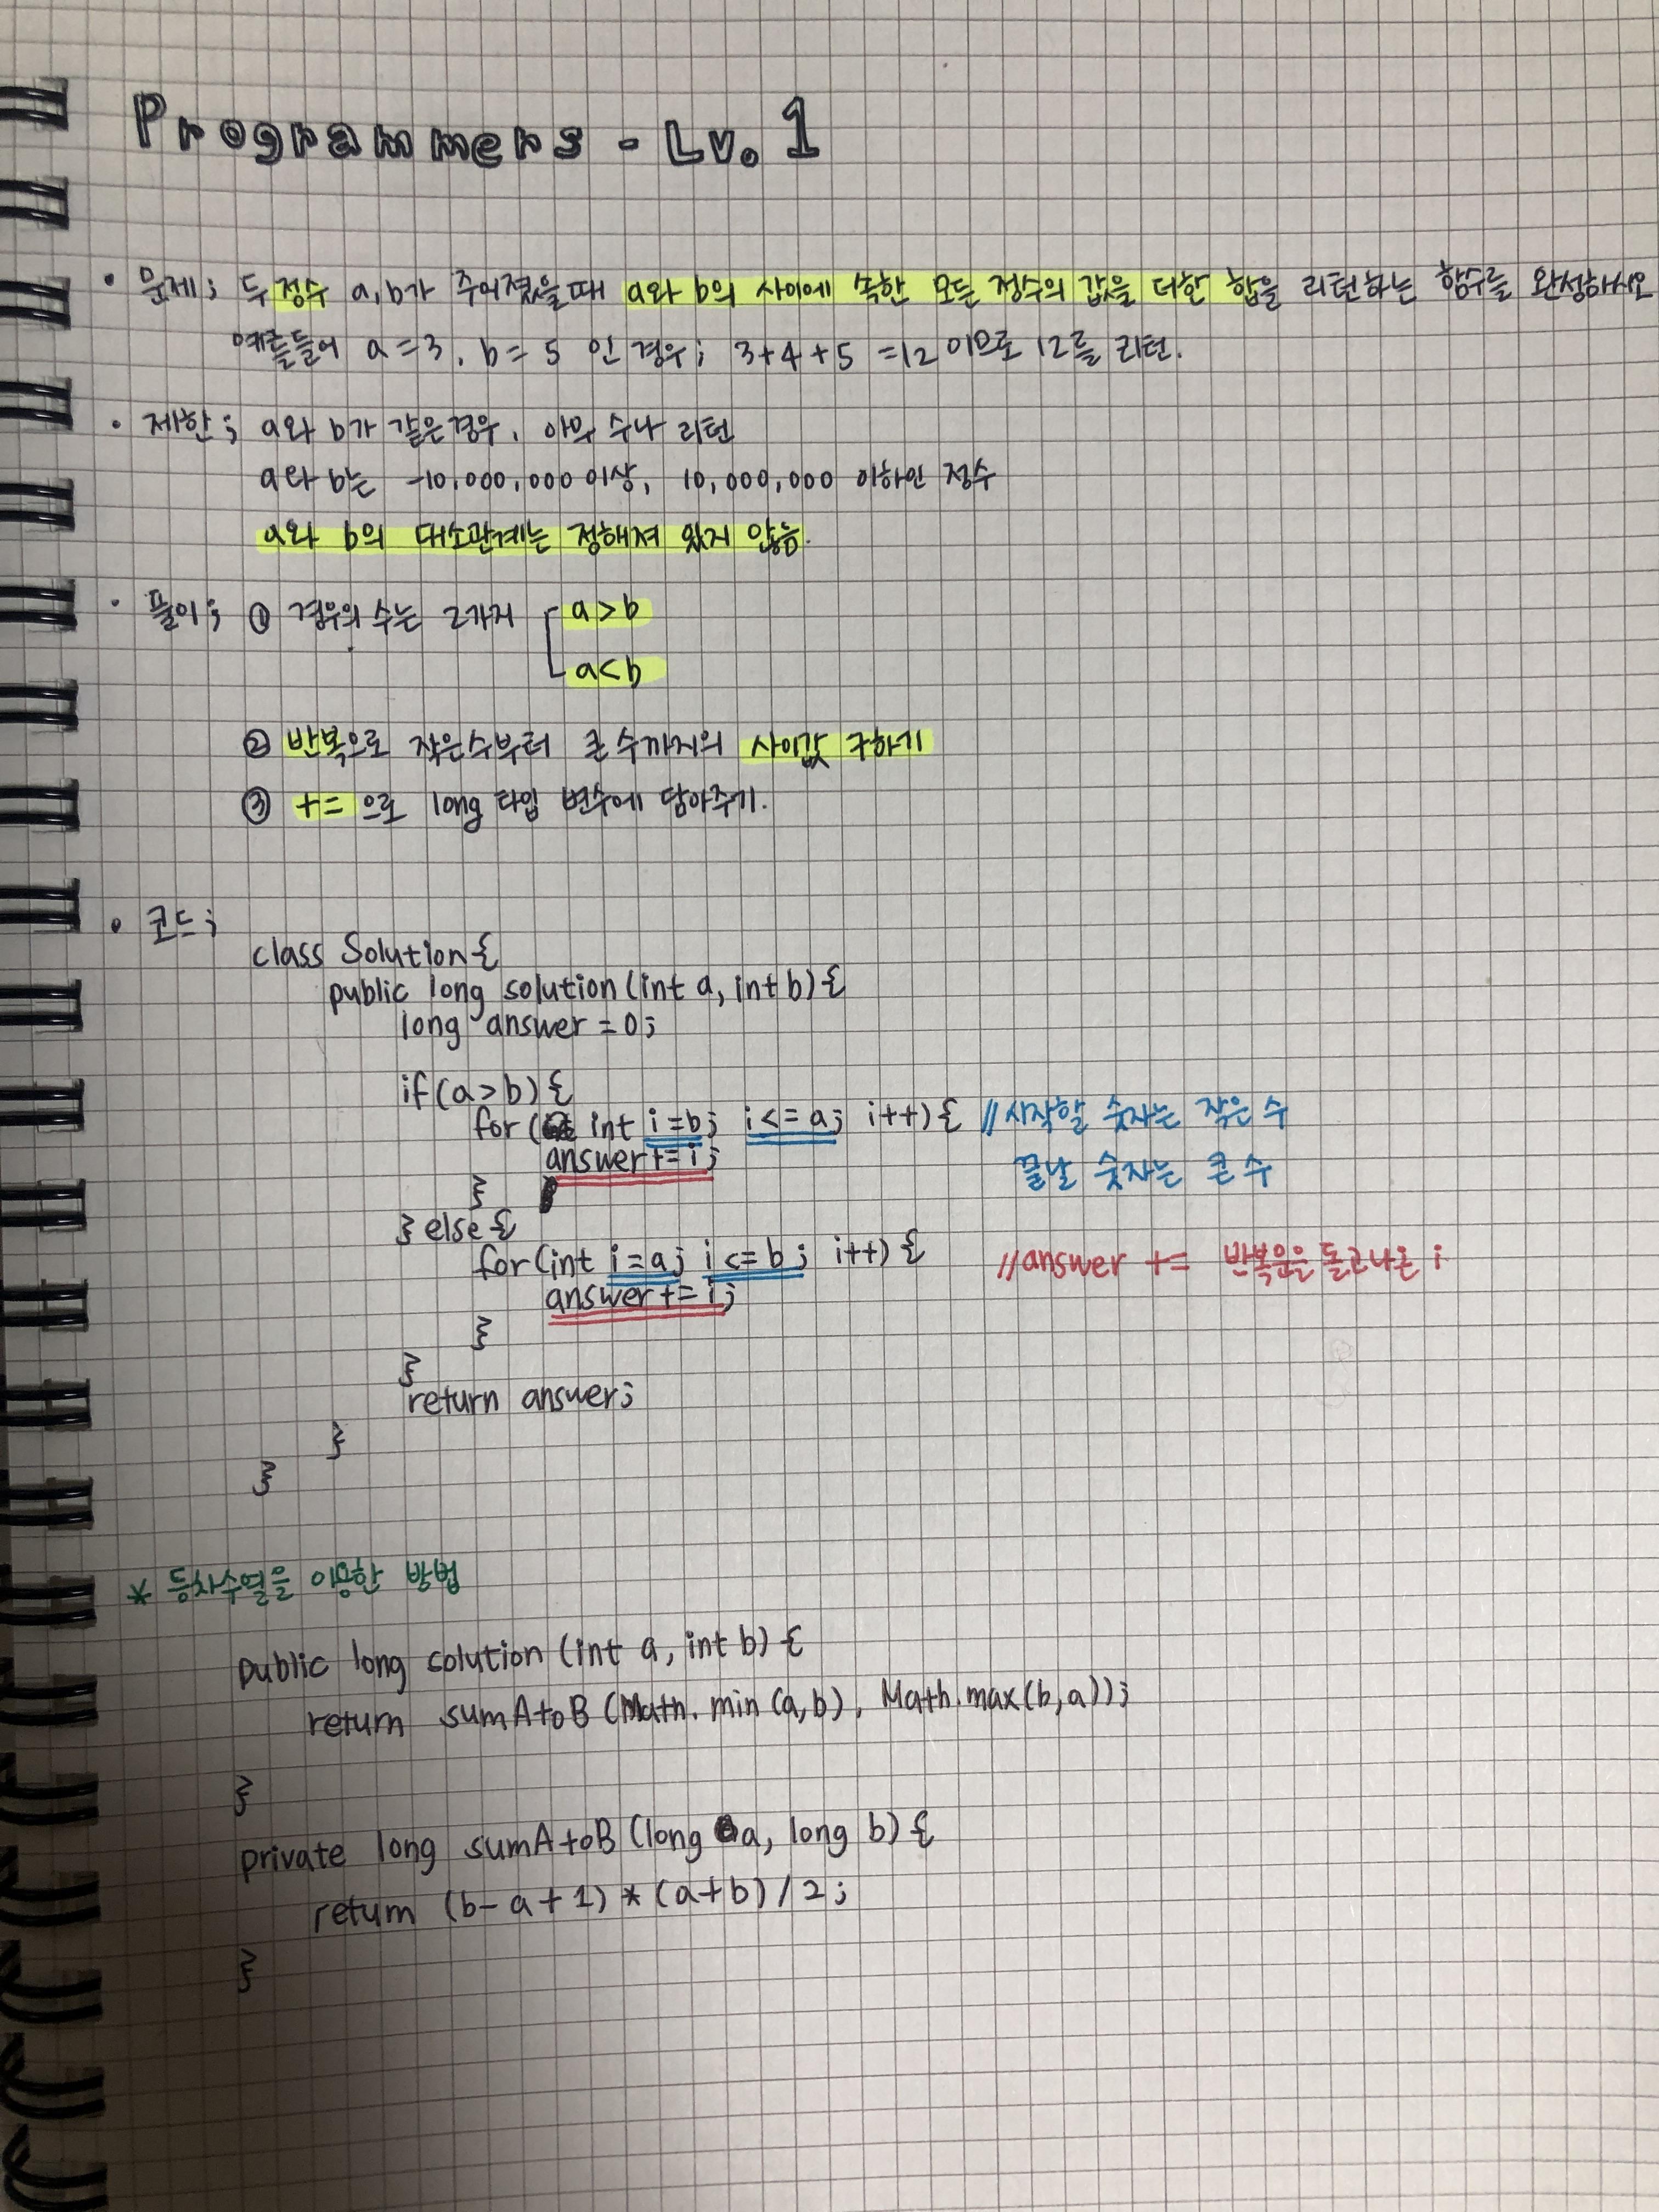 Programmers - Lv. 1
• 문제; 두 정수 a,b가 주어졌을때 a와 b의 사이에 속한 모든 정수의 값을 더한 합을 리턴하는 함수를 완성하시오
예를들어 a=3, b=5 인 경우; 3+4+5 =12 이므로 12를 리턴.
• 제한; a와 b가 같은경우, 아무 수나 리턴
a와 b는 -10,000,000 이상, 10,000,000 이하인 정수
a와 b의 대소관계는 정해져 있지 않음.
• 풀이; ① 경우의 수는 2가지 a>b
a<b
② 반복으로 작은수부터 큰 수까지의 사이값 구하기
③ += 으로 long 타입 변수에 담아주기.
• 코드;
class Solution{
public long solution(int a, int b){
long answer = 0;
if(a>b){
for( int i=b; i<=a; i++){ //시작할 숫자는 작은 수
answer+=i; 끝날 숫자는 큰 수
}
} else {
for(int i=a; i<=b; i++){ //answer += 반복문을 돌고나온 i
answer+=i;
}
}
return answer;
}
}
* 등차수열을 이용한 방법
public long solution (int a, int b) {
return sumAtoB (Math.min(a,b), Math.max(b,a));
}
private long sumAtoB (long a, long b) {
return (b-a+1)*(a+b)/2;
}